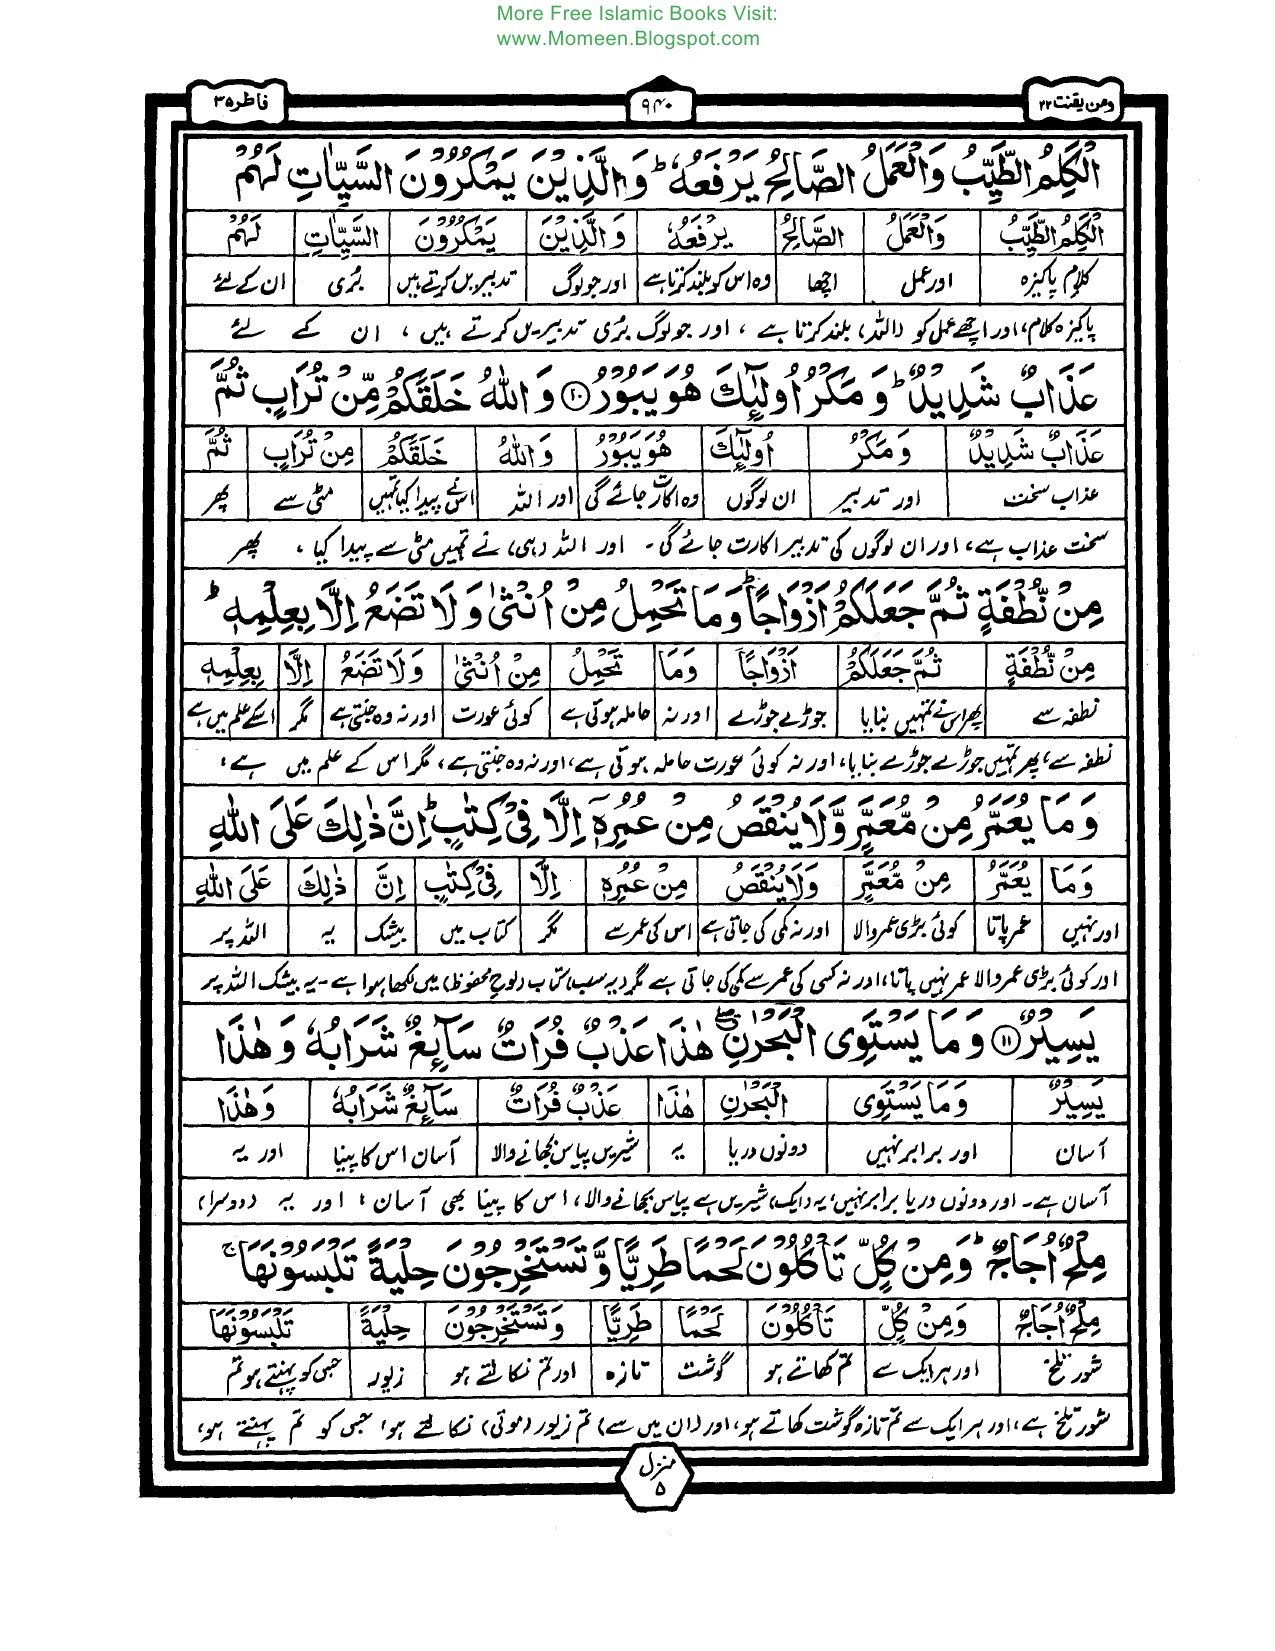 More Free Islamic Books Visit:
www.Momeen.Blogspot.com
ومن یقنت ۲۲
۹۴۰
فاطر ۳۵
الْكَلِمُ الطَّيِّبُ وَالْعَمَلُ الصَّالِحُ يَرْفَعُهٗ ؕ وَالَّذِيْنَ يَمْكُرُوْنَ السَّيِّاٰتِ لَهُمْ
الْكَلِمُ الطَّيِّبُ وَالْعَمَلُ الصَّالِحُ يَرْفَعُهٗ وَالَّذِيْنَ يَمْكُرُوْنَ السَّيِّاٰتِ لَهُمْ
کلام پاکیزہ اور عمل اچھا وہ اس کو بلند کرتا ہے اور جو لوگ تدبیریں کرتے ہیں بُری ان کے لئے
پاکیزہ کلام، اور اچھے عمل کو (اللہ) بلند کرتا ہے ، اور جو لوگ بُری تدبیریں کرتے ہیں ، ان کے لئے
عَذَابٌ شَدِيْدٌ ؕ وَمَكْرُ اُولٰٓئِكَ هُوَ يَبُوْرُ ⑩ وَاللّٰهُ خَلَقَكُمْ مِّنْ تُرَابٍ ثُمَّ
عَذَابٌ شَدِيْدٌ وَمَكْرُ اُولٰٓئِكَ هُوَ يَبُوْرُ وَاللّٰهُ خَلَقَكُمْ مِنْ تُرَابٍ ثُمَّ
عذاب سخت اور تدبیر ان لوگوں وہ اکارت جائے گی اور اللہ اس نے پیدا کیا تمہیں مٹی سے پھر
سخت عذاب ہے، اور ان لوگوں کی تدبیر اکارت جائے گی ۔ اور اللہ (ہی) نے تمہیں مٹی سے پیدا کیا ، پھر
مِنْ نُّطْفَةٍ ثُمَّ جَعَلَكُمْ اَزْوَاجًا ؕ وَمَا تَحْمِلُ مِنْ اُنْثٰى وَلَا تَضَعُ اِلَّا بِعِلْمِهٖ ؕ
مِنْ نُّطْفَةٍ ثُمَّ جَعَلَكُمْ اَزْوَاجًا وَمَا تَحْمِلُ مِنْ اُنْثٰى وَلَا تَضَعُ اِلَّا بِعِلْمِهٖ
نطفہ سے پھر اس نے تمہیں بنایا جوڑے جوڑے اور نہ حاملہ ہوتی ہے کوئی عورت اور نہ وہ جنتی ہے مگر اسکے علم میں ہے
نطفہ سے، پھر تمہیں جوڑے جوڑے بنایا، اور نہ کوئی عورت حاملہ ہوتی ہے، اور نہ وہ جنتی ہے، مگر اس کے علم میں ہے؛
وَمَا يُعَمَّرُ مِنْ مُّعَمَّرٍ وَّلَا يُنْقَصُ مِنْ عُمُرِهٖۤ اِلَّا فِيْ كِتٰبٍ ؕ اِنَّ ذٰلِكَ عَلَى اللّٰهِ
وَمَا يُعَمَّرُ مِنْ مُّعَمَّرٍ وَلَا يُنْقَصُ مِنْ عُمُرِهٖ اِلَّا فِيْ كِتٰبٍ اِنَّ ذٰلِكَ عَلَى اللّٰهِ
اور نہیں عمر پاتا کوئی بڑی عمر والا اور نہ کمی کی جاتی ہے اس کی عمر سے مگر کتاب میں بیشک یہ اللہ پر
اور کوئی بڑی عمر والا عمر نہیں پاتا، اور نہ کسی کی عمر سے کمی کی جاتی ہے مگر (یہ سب) کتاب (لوح محفوظ) میں لکھا ہوا ہے ۔ یہ بیشک اللہ پر
يَسِيْرٌ ⑪ وَمَا يَسْتَوِى الْبَحْرٰنِ ۖ هٰذَا عَذْبٌ فُرَاتٌ سَآئِغٌ شَرَابُهٗ وَهٰذَا
يَسِيْرٌ وَمَا يَسْتَوِى الْبَحْرٰنِ هٰذَا عَذْبٌ فُرَاتٌ سَآئِغٌ شَرَابُهٗ وَهٰذَا
آسان اور برابر نہیں دونوں دریا یہ شیریں پیاس بجھانے والا آسان اس کا پینا اور یہ
آسان ہے۔ اور دونوں دریا برابر نہیں، یہ (ایک) شیریں ہے پیاس بجھانے والا، اس کا پینا بھی آسان ؛ اور یہ (دوسرا)
مِلْحٌ اُجَاجٌ ؕ وَمِنْ كُلٍّ تَاْكُلُوْنَ لَحْمًا طَرِيًّا وَّتَسْتَخْرِجُوْنَ حِلْيَةً تَلْبَسُوْنَهَا ۚ
مِلْحٌ اُجَاجٌ وَمِنْ كُلٍّ تَاْكُلُوْنَ لَحْمًا طَرِيًّا وَتَسْتَخْرِجُوْنَ حِلْيَةً تَلْبَسُوْنَهَا
شور تلخ اور ہر ایک سے تم کھاتے ہو گوشت تازہ اور تم نکالتے ہو زیور جس کو پہنتے ہو تم
شور تلخ ہے، اور ہر ایک سے تم تازہ گوشت کھاتے ہو، اور (ان میں سے) تم زیور (موتی) نکالتے ہو، جس کو تم پہنتے ہو،
منزل
۵